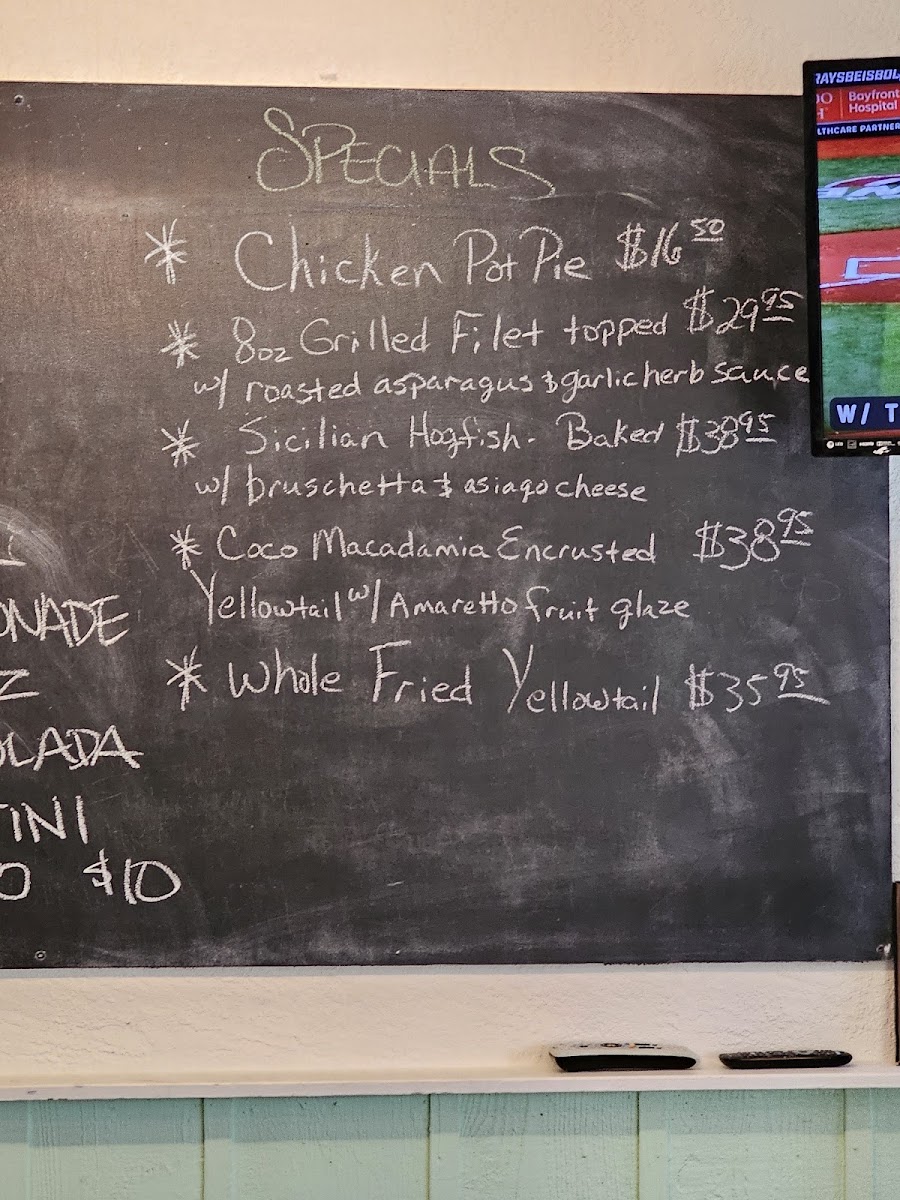 SPECIALS
* Chicken Pot Pie $16 50
* 8oz Grilled Filet topped $29 95
w/ roasted asparagus & garlic herb sauce
* Sicilian Hogfish - Baked $38 95
w/ bruschetta & asiago cheese
* Coco Macadamia Encrusted $38 95
Yellowtail w/ Amaretto fruit glaze
* Whole Fried Yellowtail $35 95
ONADE
Z
OLADA
TINI
O $10
RAYSBEISBOL
Bayfront
Hospital
LTHCARE PARTNER
W/ T